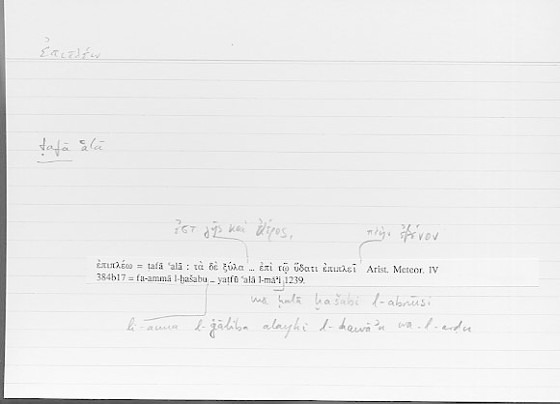 ἐπιπλέω
ṭafā ʿalā
ἐστ γῆς καὶ ἀέρος,
πλὴν ἐβένου
ἐπιπλέω = ṭafā ʿalā : τὰ δὲ ξύλα ... ἐπὶ τῷ ὕδατι ἐπιπλεῖ Arist. Meteor. IV
384b17 = fa-ammā l-ḫašabu ... yaṭfū ʿalā l-māʾi 1239.
ḫašabi l-abnūsi
li-anna l-ġāliba ʿalayhi l-hawāʾu wa-l-arḍu